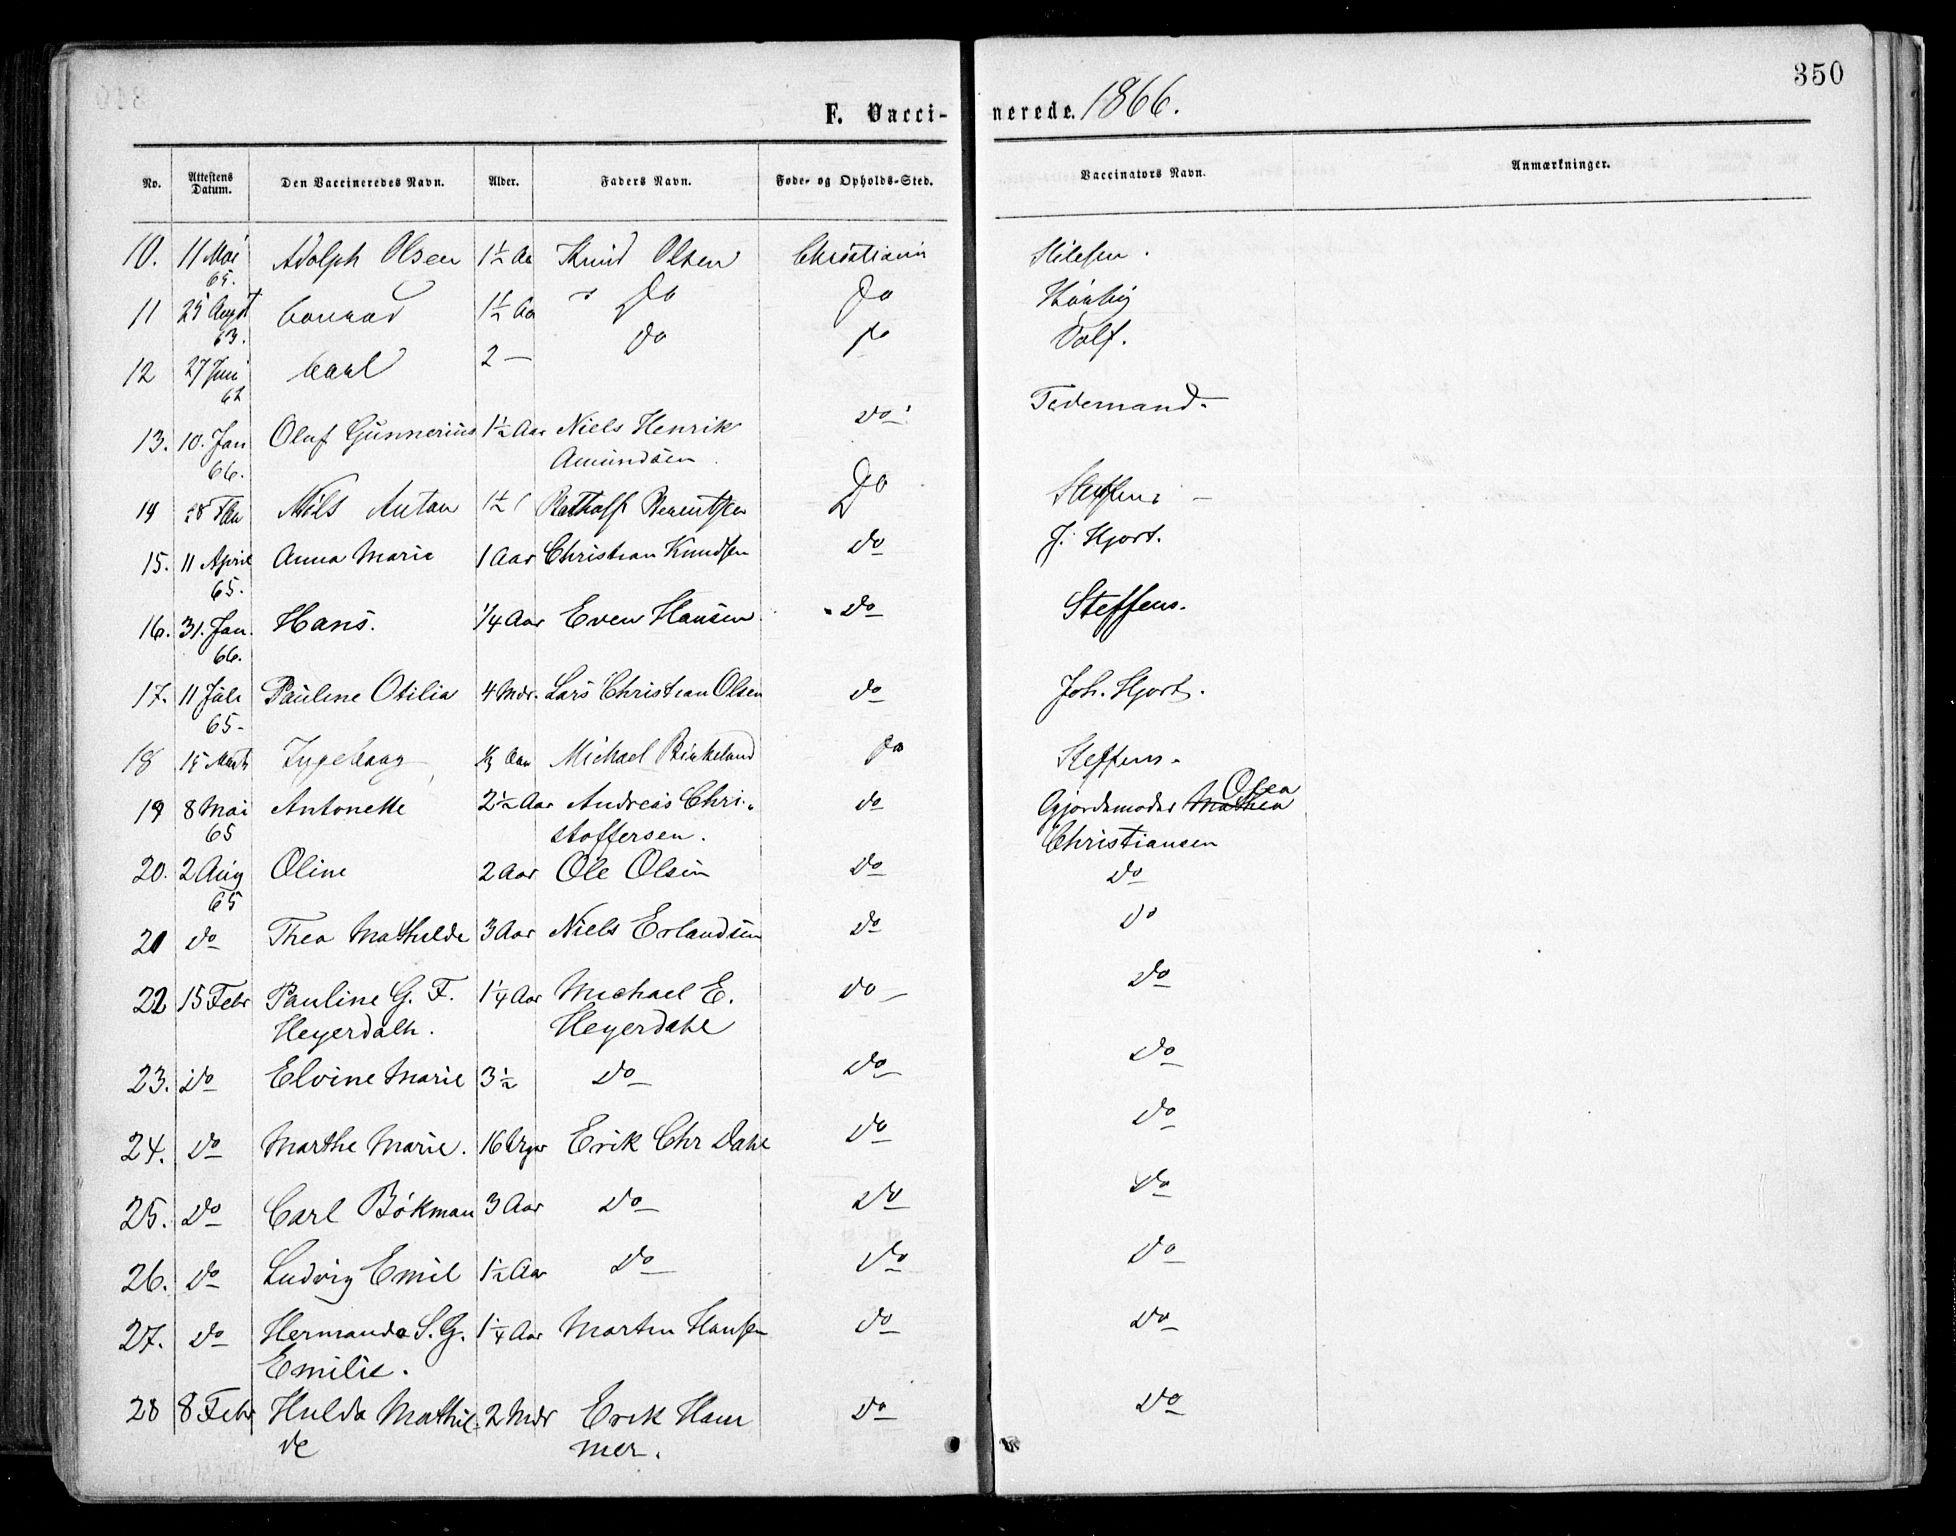 350
F. Vaccinerede. 1866.
No. Attestens Datum. Den Vaccineredes Navn. Alder. Faders Navn. Føde- og Opholds-Sted. Vaccinators Navn. Anmærkninger.
10. 11 Mai Adolph Olsen 1½ Aa Knud Olsen Christiania
65.
11 25 Augst Conrad 1½ Aa Do Do
63.
12 27 Juni Carl 2 — Do Do Volf.
62
13. 10. Jan Oluf Gunnerius 1½ Aar Niels Henrik Do Tedemand.
66. Amundsen
14 28 Nils Anton 1½ Berentsen Do Steffens
15. 11 April Anna Marie 1 Aar Christian Knudsen Do J. Hjort.
65.
16. 31. Jan. Hans. ¼ Aar Even Hansen Do Steffens.
66.
17. 11 Juli Pauline Otilia 4 Mdr. Lars Christian Olsen Do Joh. Hjort.
65-
18 15 Marts Ingeborg ⅓ Aar Michael Birkeland Do Steffens.
19 8 Mai Antonette 2½ Aar Andreas Chri- Do Gjordemoder Mathea Olea
65 stoffersen. Christiansen
20. 2 Aug Oline 2 Aar Ole Olsen Do Do
65
21 Do Thea Mathilde 3 Aar Niels Erlandsen Do Do
22 15 Febr Pauline G. F. 1¼ Aar Michael E. Do Do
Heyerdalh. Heyerdahl
23. Do Elvine Marie 3½ Do Do Do
24. Do Marthe Marie. 16 Uger Erik Chr Dahl Do Do
25. Do Carl Bökman 3 Aar Do Do Do
26. Do Ludvig Emil 1½ Aar Do Do Do
27. Do Hermanda S. G. 1¼ Aar Morten Hansen Do Do
Emilie.
28 8 Febr Hulda Mathil- 2 Mdr Erik Ham Do Do
de mer.